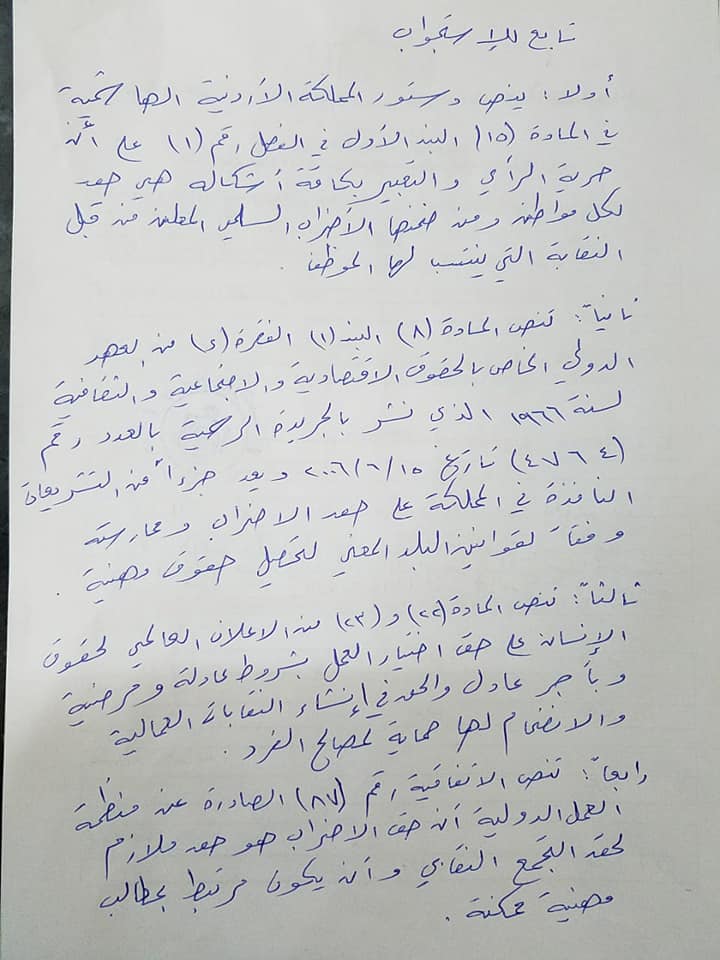 تابع للإستجواب
أولا: ينص دستور المملكة الأردنية الهاشمية
في المادة (١٥) البند الأول في الفصل رقم (١) على أن
حرية الرأي والتعبير بكافة أشكاله هي حق
لكل مواطن ومن ضمنها الأضراب السلمي المعلن من قبل
النقابة التي ينتسب لها الموظف.
ثانياً: تنص المادة (٨) البند (١) الفقرة (د) من العهد
الدولي الخاص بالحقوق الاقتصادية والاجتماعية والثقافية
لسنة ١٩٦٦ الذي نشر بالجريدة الرسمية بالعدد رقم
(٤٧٦٤) تاريخ ١٥/٦/٢٠٠٦ ويعد جزءاً من التشريعات
النافذة في المملكة على حق الاضراب وممارسته
وفقاً لقوانين البلد المعني لتحصيل حقوق مهنية.
ثالثاً: تنص المادة (٢٢) و (٢٣) من الاعلان العالمي لحقوق
الإنسان على حق اختيار العمل بشروط عادلة ومرضية
وبأجر عادل والحق في إنشاء النقابات العمالية
والانضمام لها حماية لمصالح الفرد.
رابعاً: تنص الاتفاقية رقم (٨٧) الصادرة عن منظمة
العمل الدولية أن حق الاضراب هو حق ملازم
لحق التجمع النقابي وأن يكون مرتبط بمطالب
مهنية ممكنة.